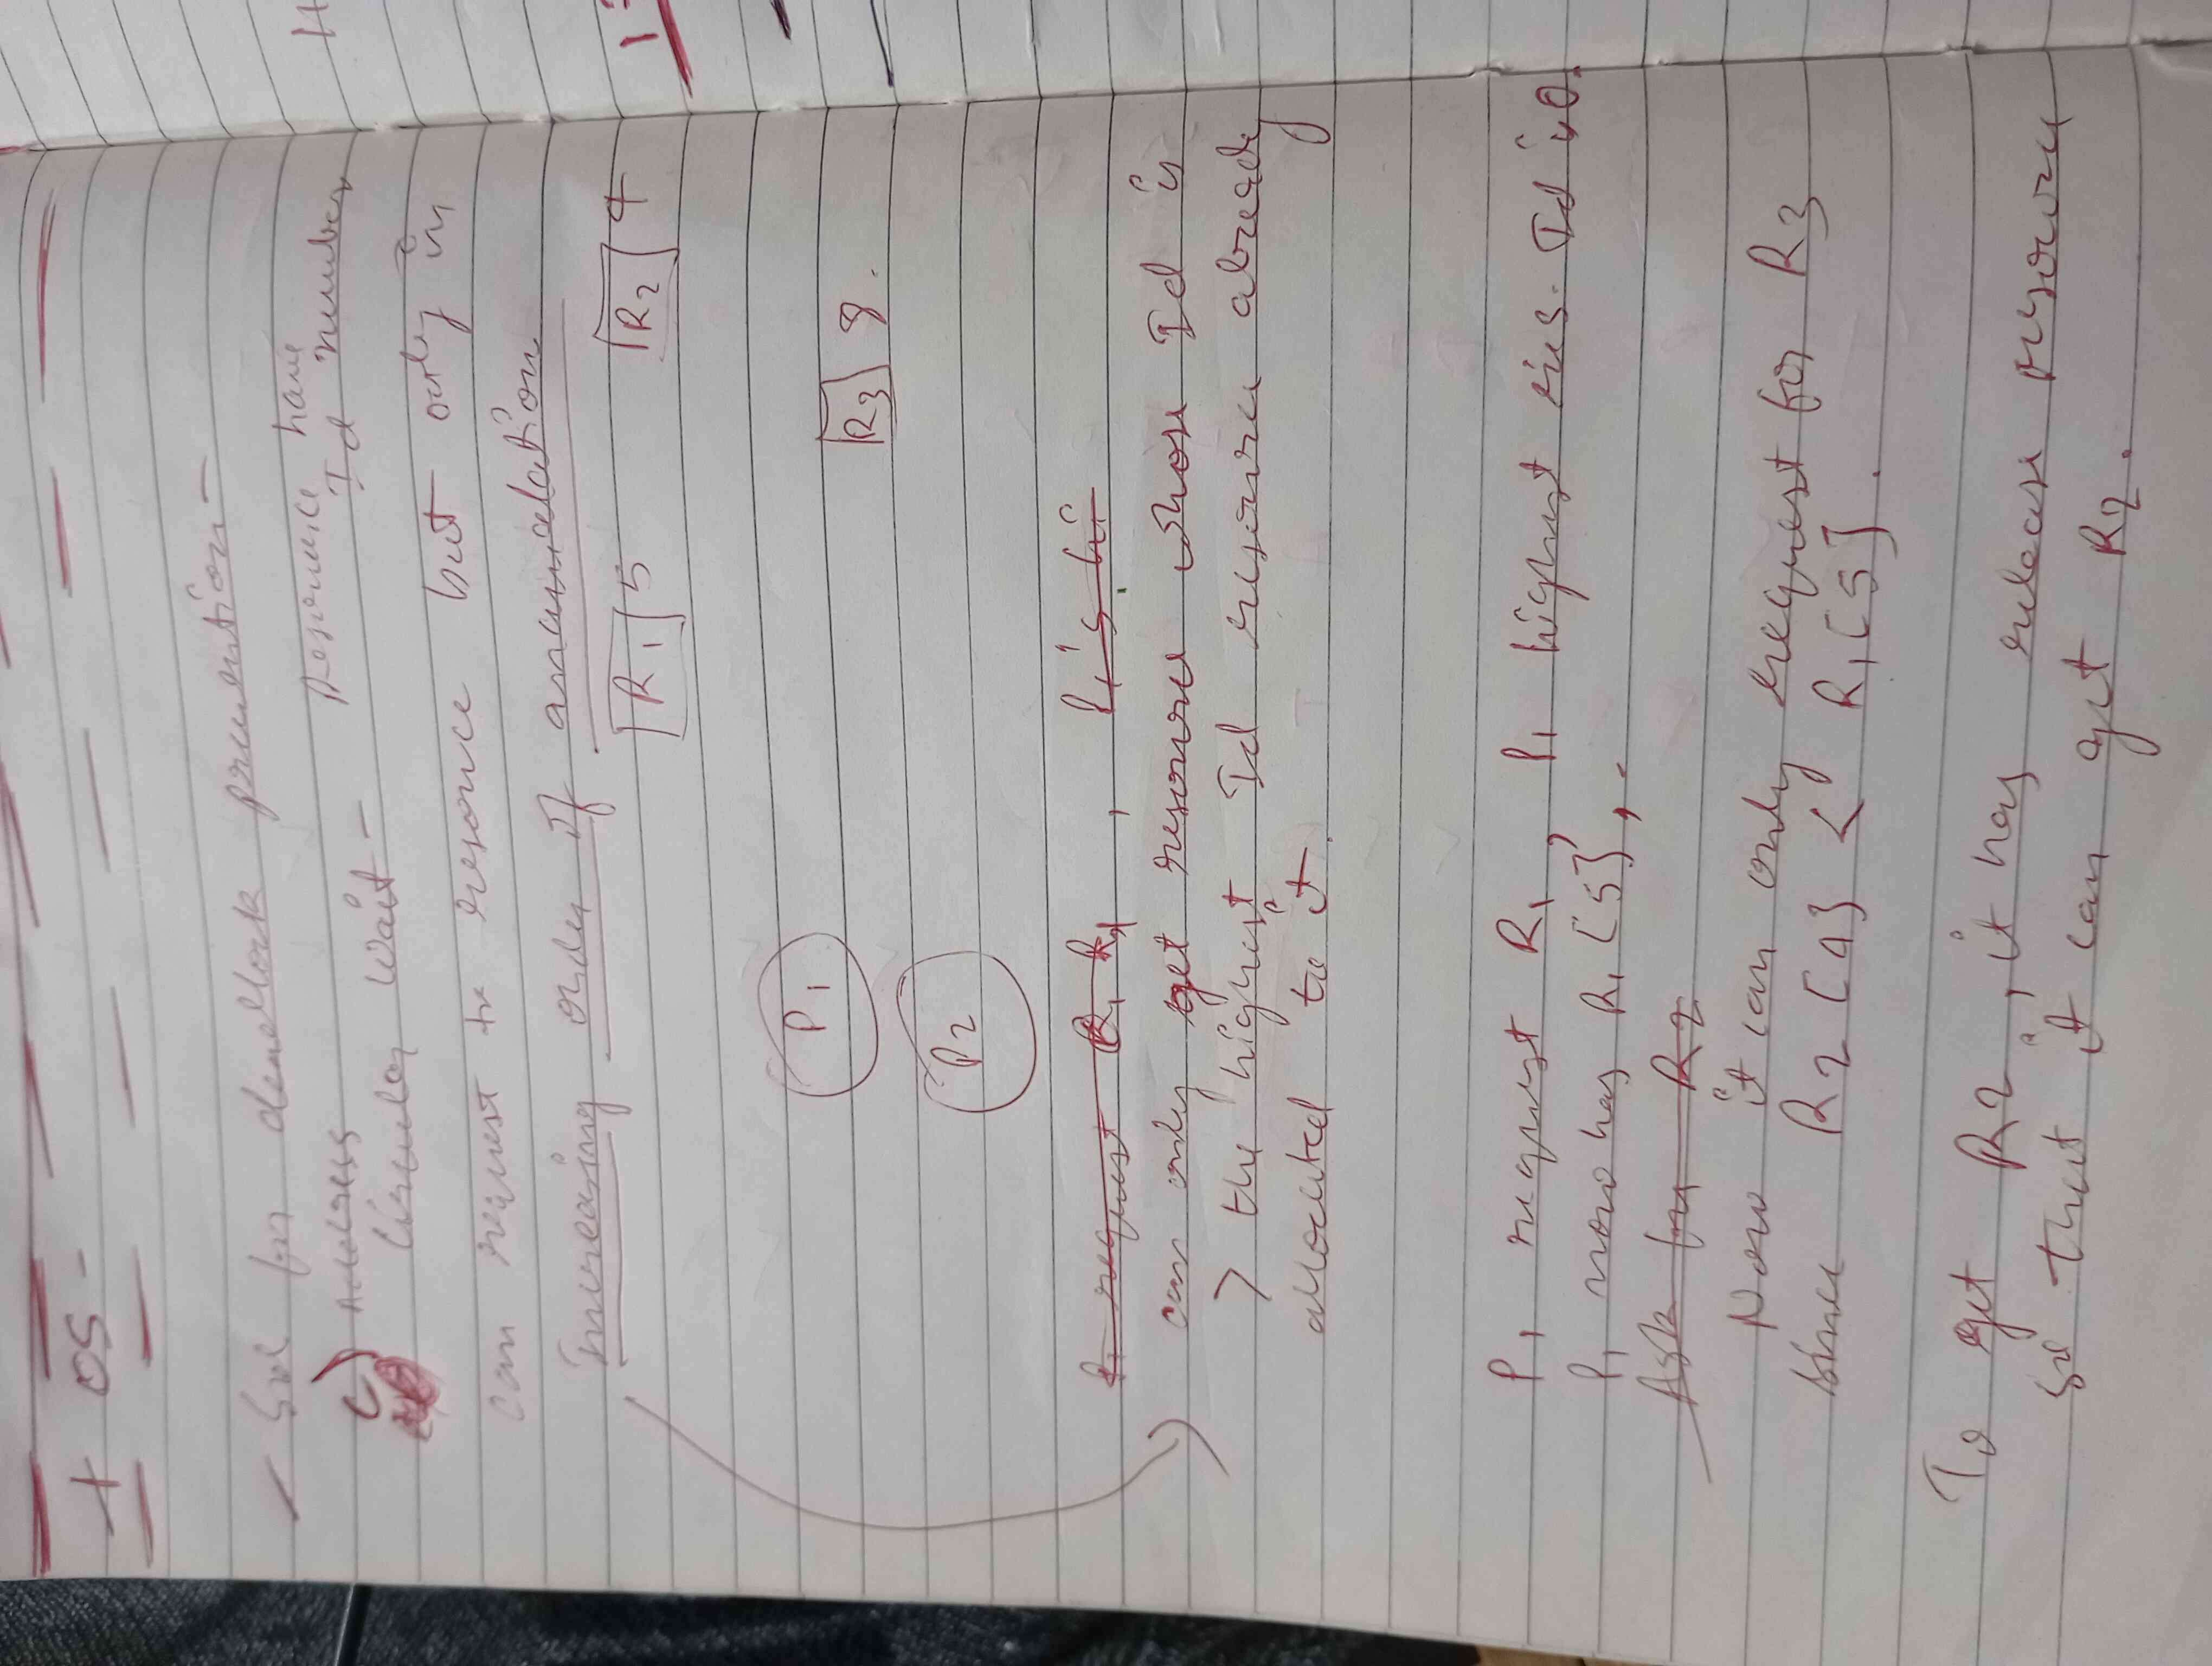 + OS -
- Sol for deadlock prevention -
c) Address
Circular Wait - Resource have
Id number
can request to resource but only in
Increasing order of
R1 5 R2 4
P1
R3 8.
P2
P1 request R1 , P1's hi
can only get resource whose Id is
> the highest Id resource already
allocated to it.
P1 request R1, P1 highest res. Id is 0.
P1 now has R1 [5], .
Ask for R2
Now it can only request for R3
since R2 [4] < R1 [5].
To get R2, it has release resource
so that it can get R2.